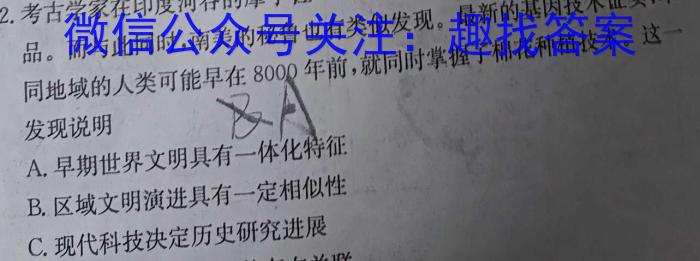 2. 考古学家在印度河谷的摩
微信公众号关注：趣找答案
品。 南美的秘鲁也有类似发现。最新的基因技术证实，不
同地域的人类可能早在8000年前，就同时掌握了棉花种植技术。这一
发现说明
B A
A. 早期世界文明具有一体化特征
B. 区域文明演进具有一定相似性
C. 现代科技决定历史研究进展